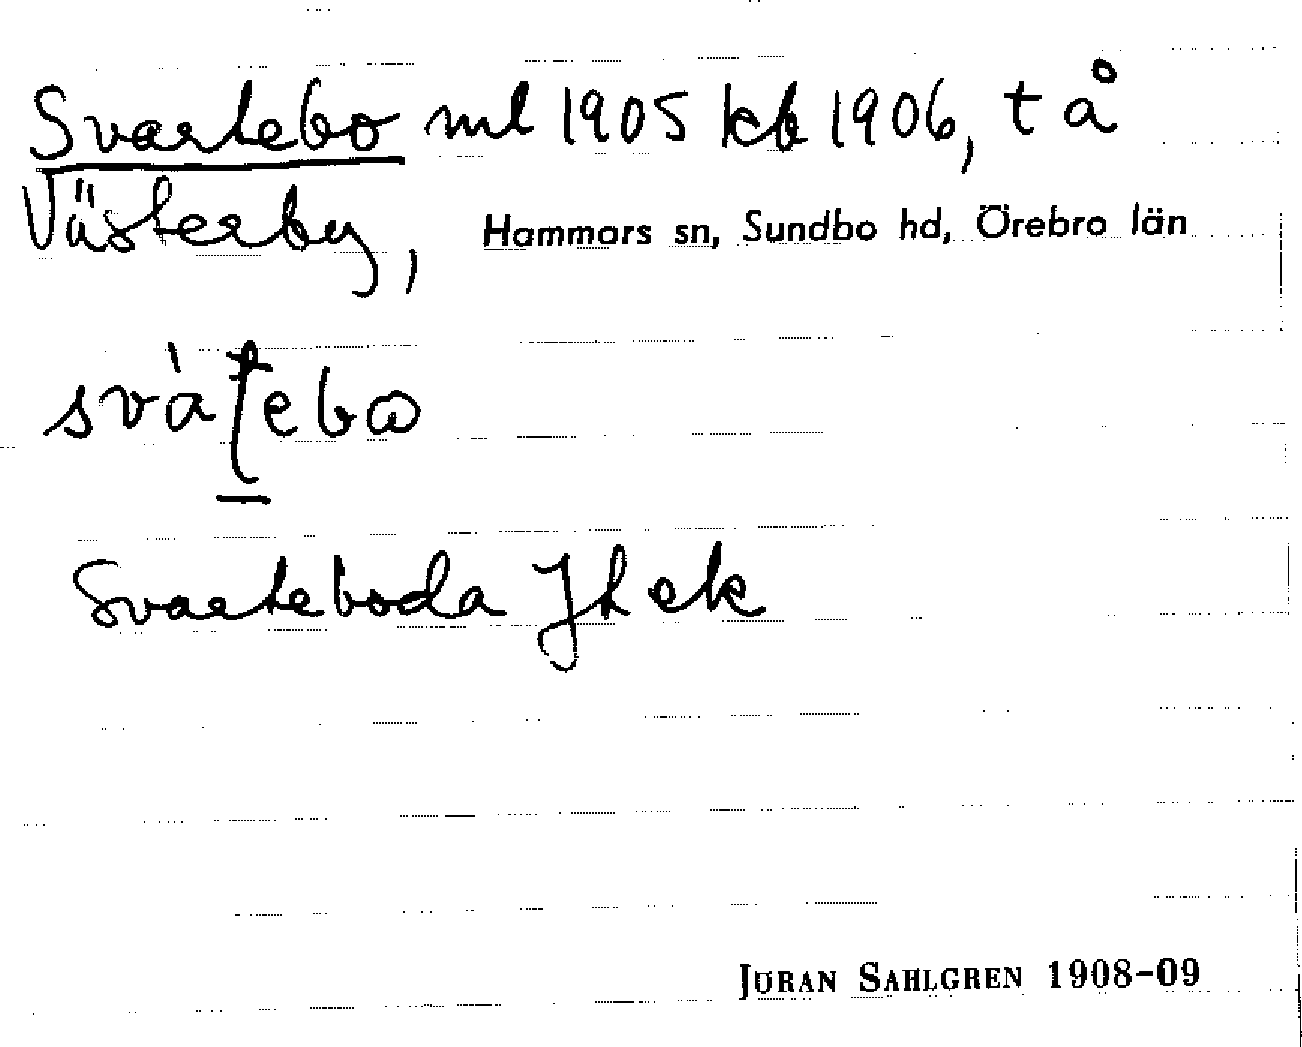 Svartebo ml 1905 kb 1906, t å
Västerby, Hammars sn, Sundbo hd, Örebro län
svàʈebω
Svarteboda Jh ek
JÖRAN SAHLGREN 1908-09